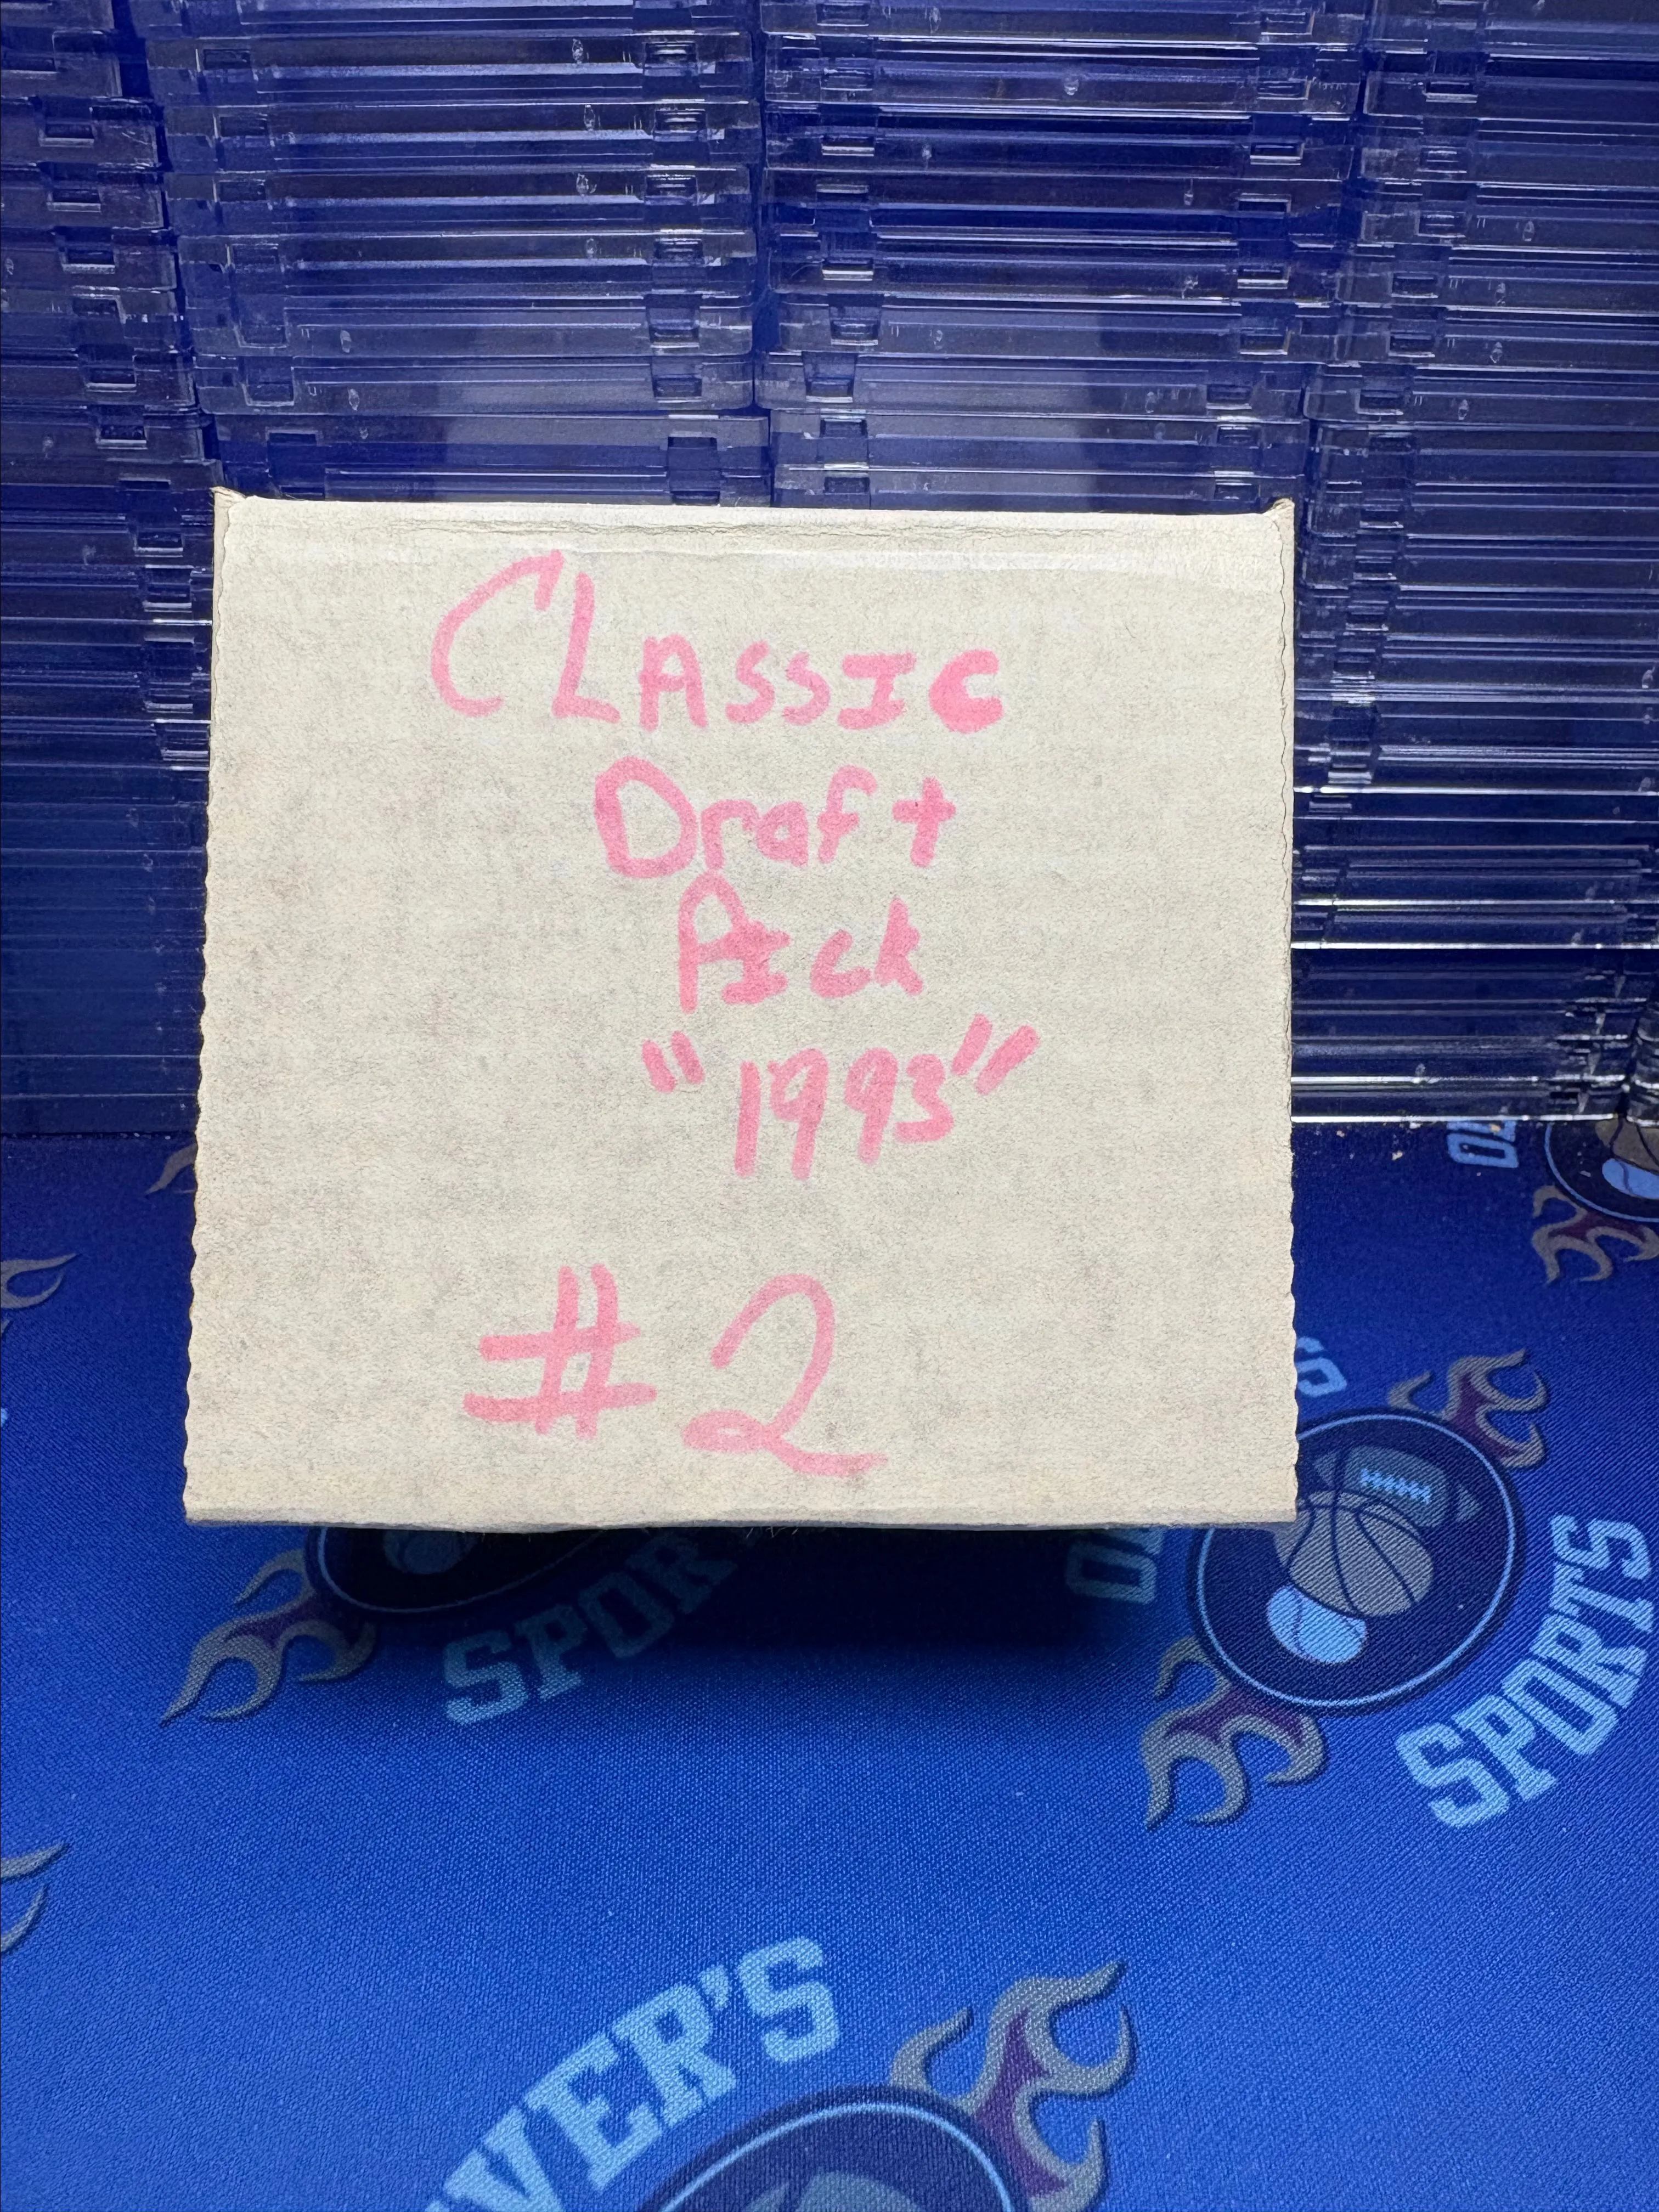 CLASSIC
Draft
Pick
"1993"
#2
SPORTS
SPOR
VER'S